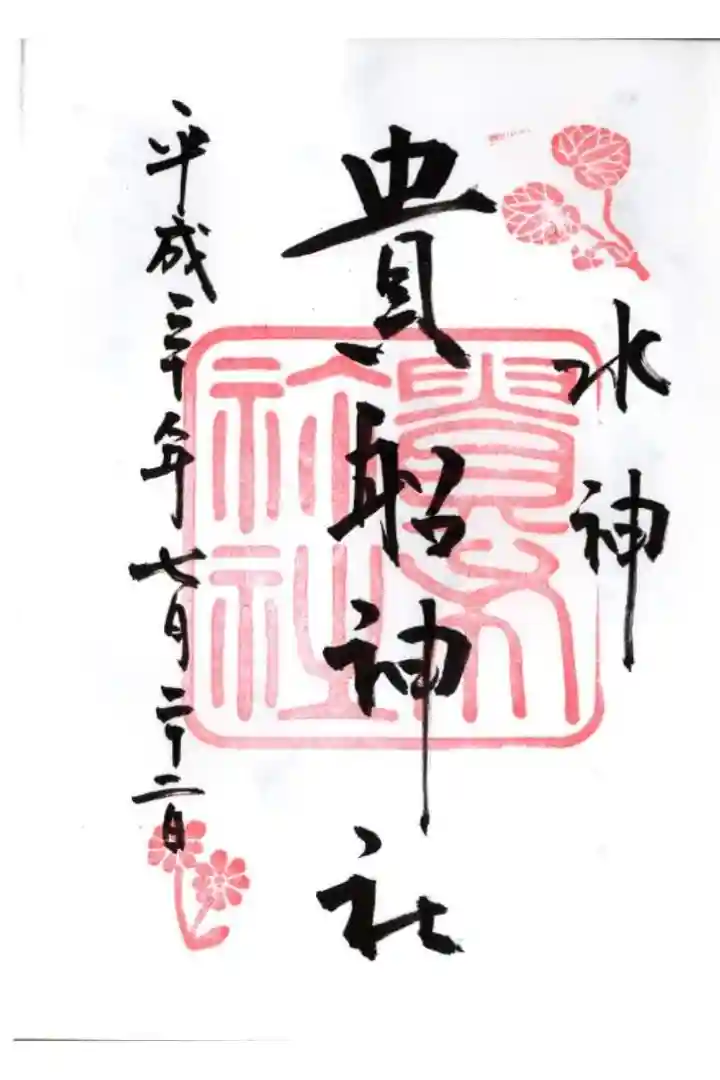 水神
貴船神社
貴布祢社
平成三十年七月二十二日